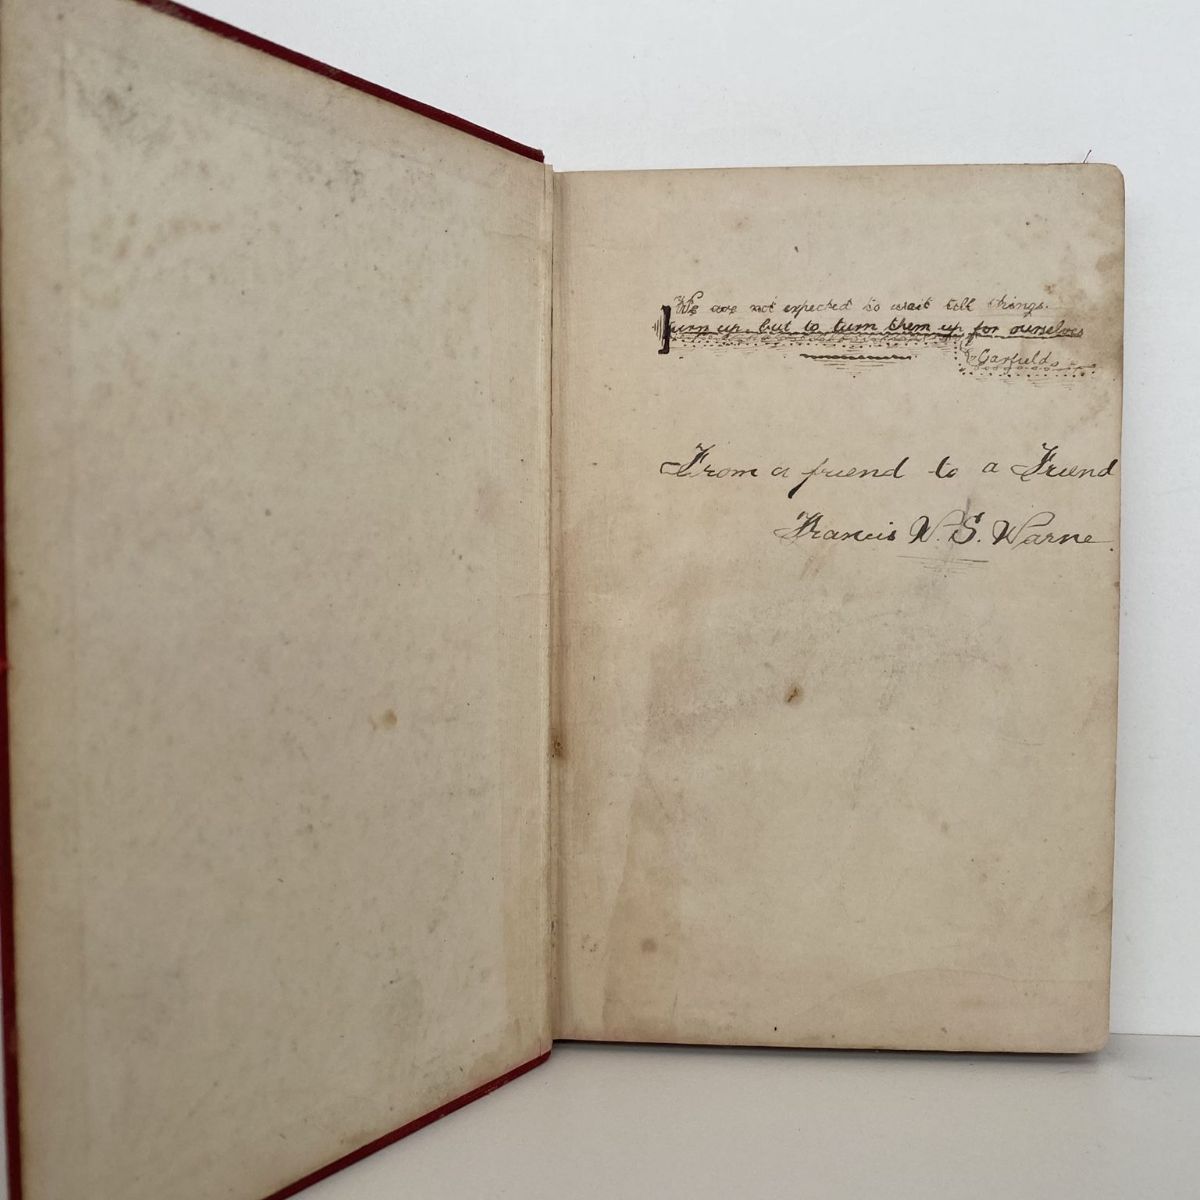 We are not expected to wait till things.
turn up, but to turn them up for ourselves
Garfield
From a friend to a Friend
Francis W. S. Warne.